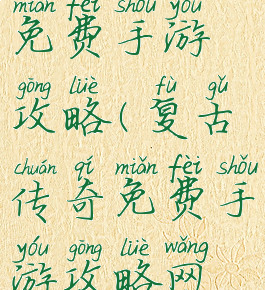 miǎn fèi shǒu yóu
免费手游
gōng lüè fù gǔ
攻略(复古
chuán qí miǎn fèi shǒu
传奇免费手
yóu gōng lüè wǎng
游攻略网